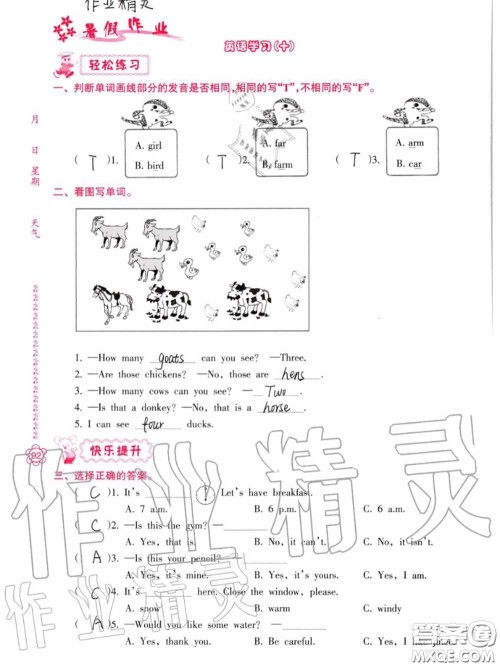 作业精灵
暑假作业
英语学习(十)
轻松练习
一、判断单词画线部分的发音是否相同,相同的写“T”,不相同的写“F”。
月 日 星期 天气
A. girl
( T )1. B. bird
A. far
( T )2. B. farm
A. arm
( T )3. B. car
二、看图写单词。
1. —How many goats can you see? —Three.
2. —Are those chickens? —No, those are hens.
3. —How many cows can you see? —Two.
4. —Is that a donkey? —No, that is a horse.
5. I can see four ducks.
92
快乐提升
三、选择正确的答案。
( C )1. It's ____ ! Let's have breakfast.
A. 7 a.m. B. 6 p.m. C. 6 am.
( C )2. —Is this the gym? —____
A. Yes, that is. B. No, it can't. C. No, it isn't.
( A )3. —Is this your pencil? ____
A. Yes, it's mine. B. Yes, it's yours. C. Yes, I am.
( C )4. It's ____ here. Close the window, please.
A. snow B. warm C. windy
( A )5. —Would you like some water? —____
A. Yes, thank you. B. Be careful. C. Yes, I
作业精灵
作业精灵
答案圈
MXQE.COM